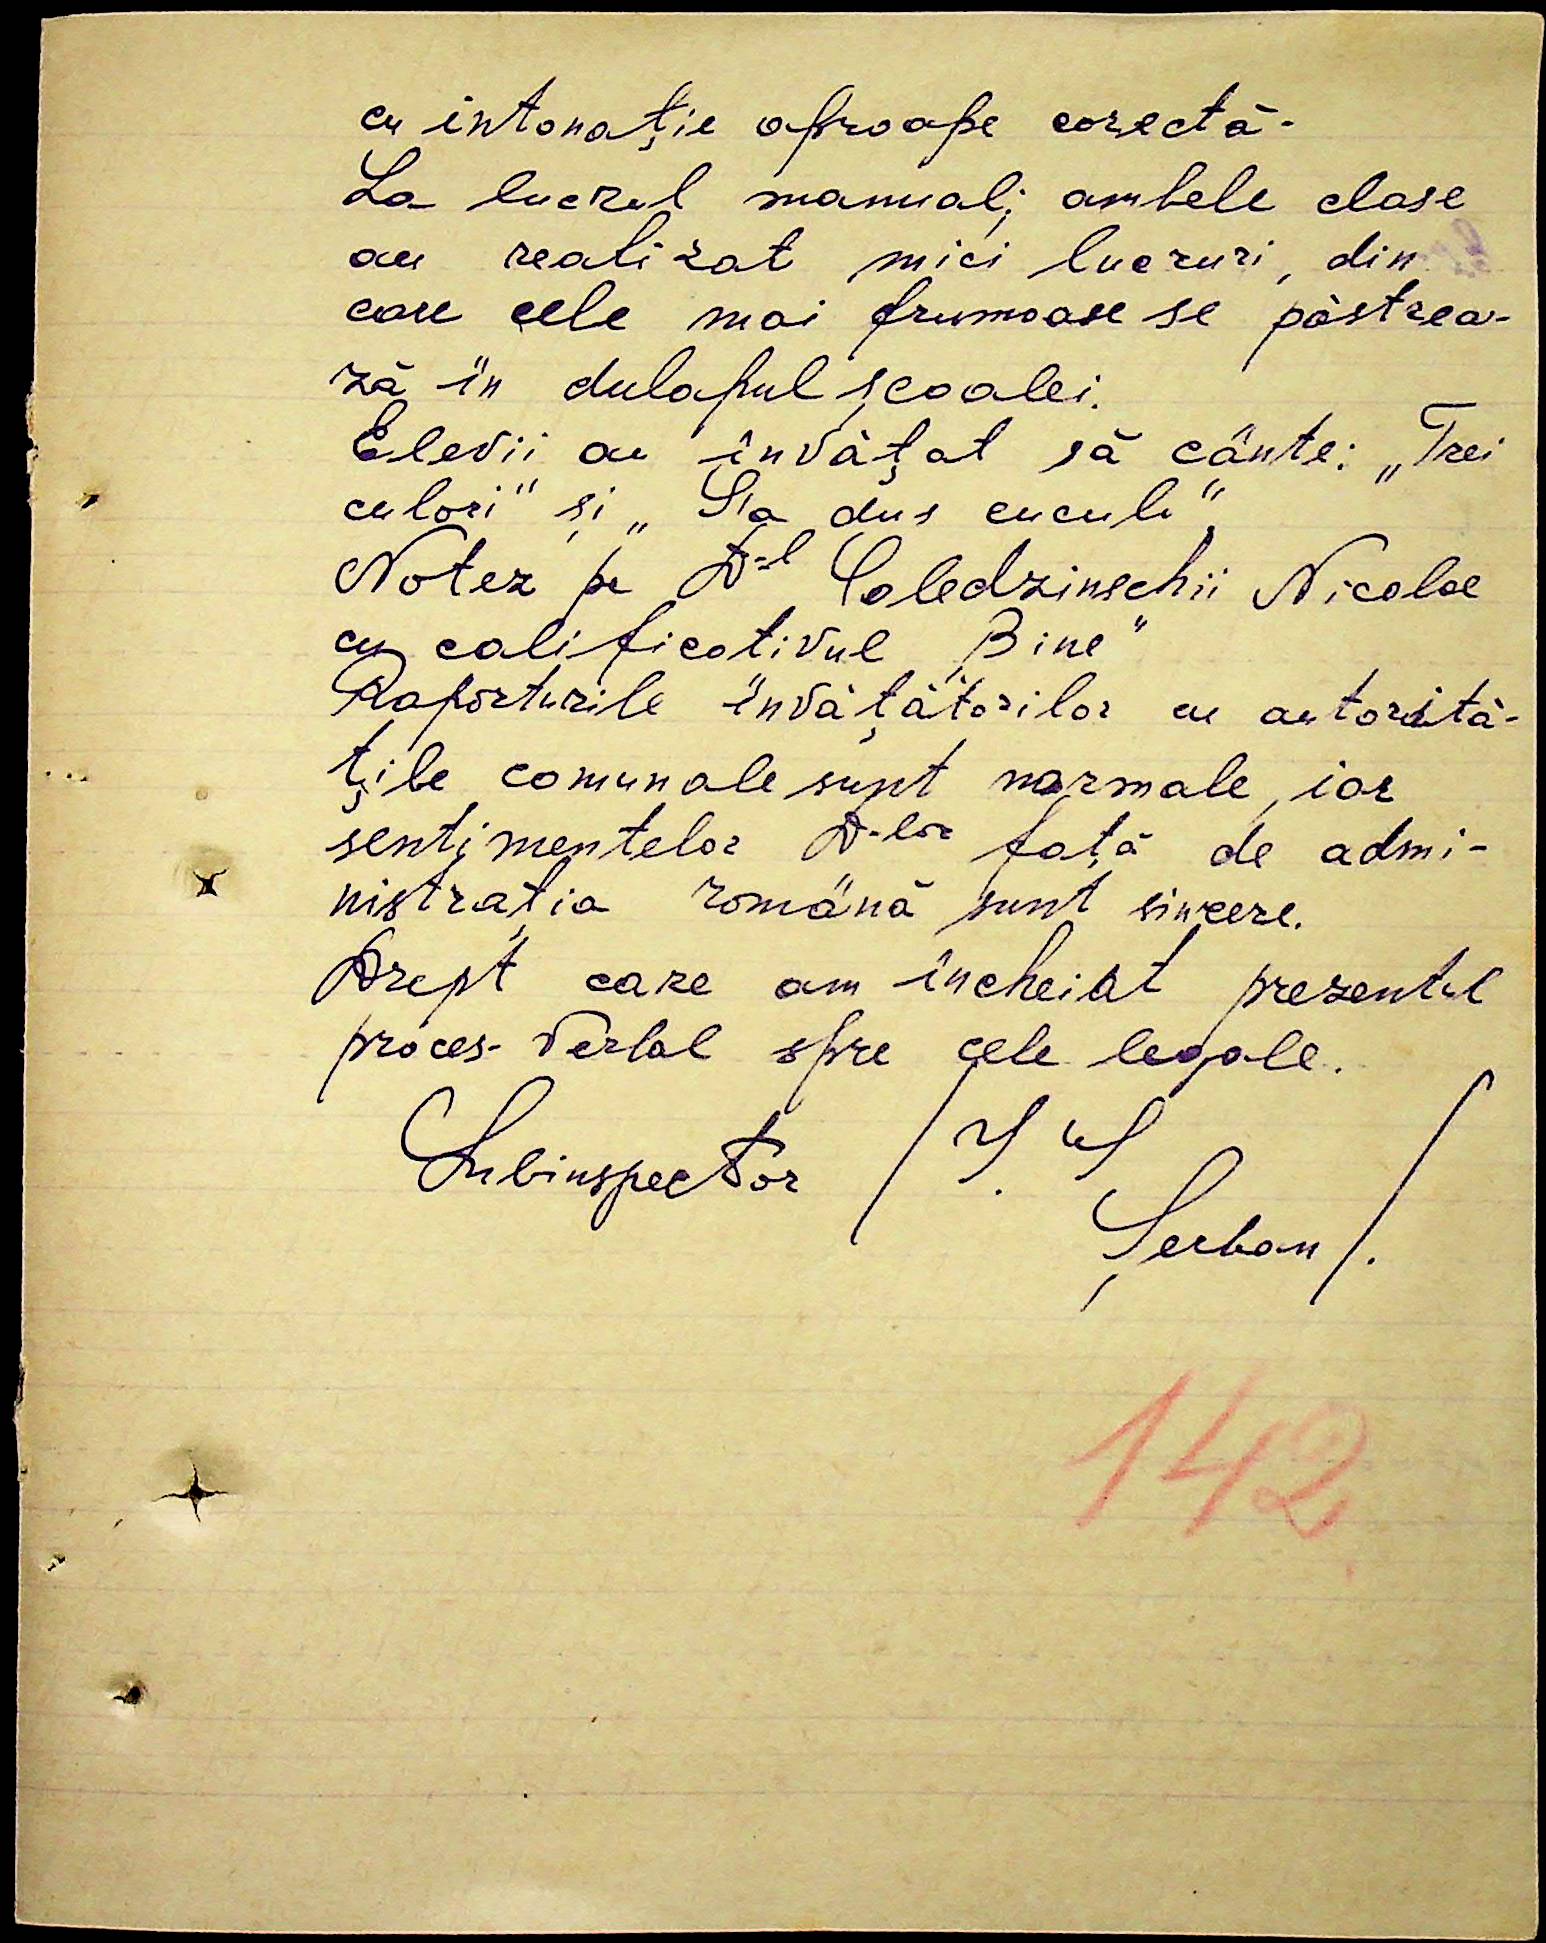 cu intonație aproape corectă.
La lucrul manual; ambele clase
au realizat mici lucruri, din
care cele mai frumoase se păstrea-
ză în dulapul școalei.
Elevii au învățat să cânte: „Trei
culori" și „S'a dus cucul"
Notez pe D-l Coledzinschii Nicolae
cu calificativul „Bine"
Raporturile învățătorilor cu autorită-
țile comunale sunt normale, iar
sentimentelor D-lor față de admi-
nistrația română sunt sincere.
Drept care am încheiat prezentul
proces-verbal spre cele legale.
Subinspector /
Șerban /.
142